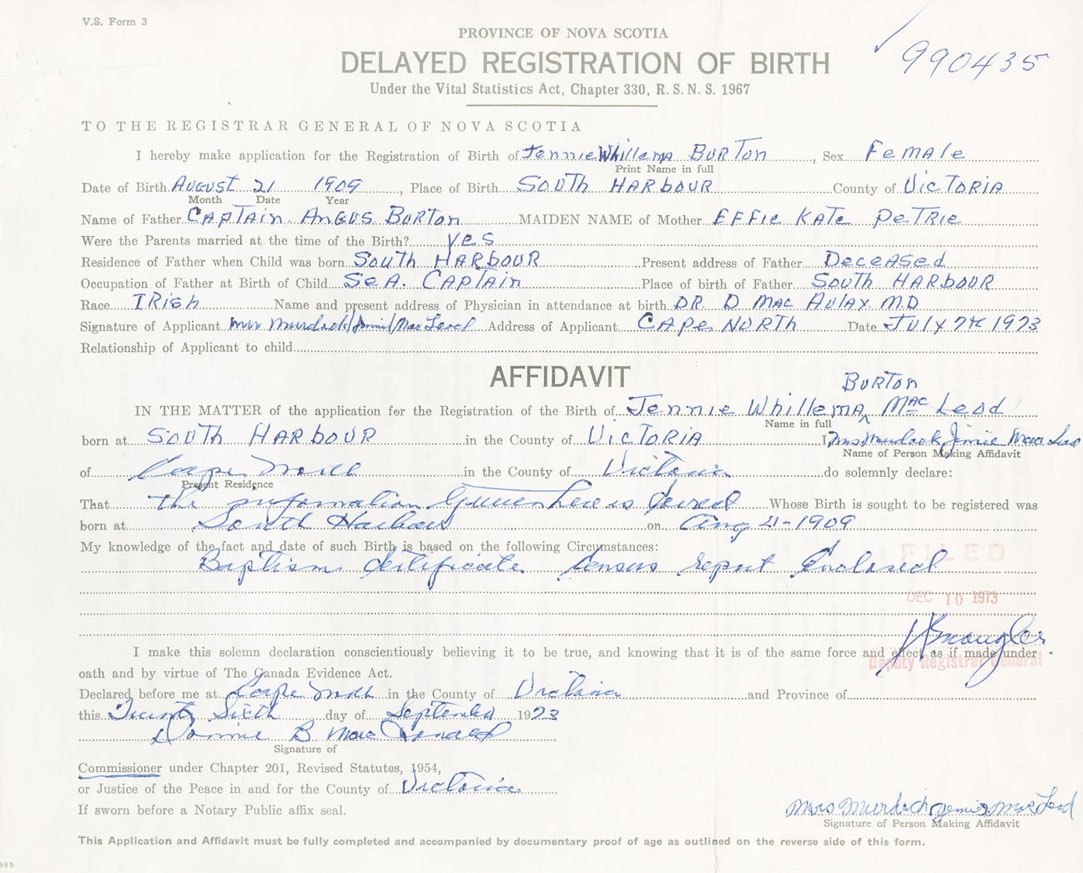 V.S. Form 3
PROVINCE OF NOVA SCOTIA
990435
DELAYED REGISTRATION OF BIRTH
Under the Vital Statistics Act, Chapter 330, R.S.N.S. 1967
TO THE REGISTRAR GENERAL OF NOVA SCOTIA
I hereby make application for the Registration of Birth of Jennie Whillema BURTON, Sex Female
Print Name in full
Date of Birth AUGUST 21 1909, Place of Birth SOUTH HARBOUR County of VICTORIA
Month Date Year
Name of Father CAPTAIN ANGUS BURTON MAIDEN NAME of Mother EFFIE KATE PETRIE
Were the Parents married at the time of the Birth? yes
Residence of Father when Child was born SOUTH HARBOUR Present address of Father Deceased
Occupation of Father at Birth of Child SEA. CAPTAIN Place of birth of Father SOUTH HARBOUR
Race IRish Name and present address of Physician in attendance at birth DR D MAC AULAY M.D
Signature of Applicant Mrs. Murdock Jennie MacLeod Address of Applicant CAPE NORTH Date JULY 7th 1973
Relationship of Applicant to child
AFFIDAVIT
BURTON
IN THE MATTER of the application for the Registration of the Birth of Jennie Whillema Mac Leod
Name in full
born at SOUTH HARBOUR in the County of VICTORIA I Mrs Murdock Jennie MacLeod
Name of Person Making Affidavit
of Cape North in the County of Victoria do solemnly declare:
Present Residence
That the information Given here is Whose Birth is sought to be registered was
born at South Harbour on Aug 21-1909
My knowledge of the fact and date of such Birth is based on the following Circumstances:
Baptism Certificate Census report Enclosed
FILED
DEC 10 1973
I make this solemn declaration conscientiously believing it to be true, and knowing that it is of the same force and effect as if made under
Deputy Registrar General
oath and by virtue of The Canada Evidence Act.
Declared before me at Cape North in the County of Victoria and Province of
this Twenty Sixth day of September 1973
Donnie B MacDonald
Signature of
Commissioner under Chapter 201, Revised Statutes, 1954,
or Justice of the Peace in and for the County of Victoria
If sworn before a Notary Public affix seal.
Mrs Murdock Jennie MacLeod
Signature of Person Making Affidavit
This Application and Affidavit must be fully completed and accompanied by documentary proof of age as outlined on the reverse side of this form.